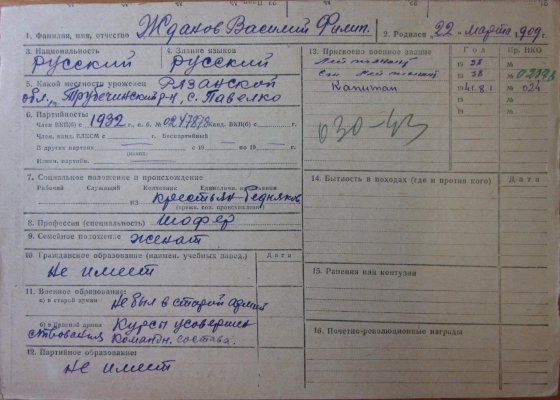 1. Фамилия, имя, отчество Жданов Василий Филип. 2. Родился "22" марта 1909 г.
3. Национальность русский
4. Знание языков русский
5. Какой местности уроженец Рязанской
обл., Трубечинский р-н, с. Павелко
6. Партийность:
Член ВКП(б) с 1932 г., п. б. № 0247878 Канд. ВКП(б) с г.
Член, канд. ВЛКСМ с г. Беспартийный
В других партиях с 19 по 19 г.
(назв.)
7. Социальное положение и происхождение
Рабочий Служащий Колхозник
из крестьян-бедняков
(прежн. соц. происхождение)
8. Профессия (специальность) шофер
9. Семейное положение женат
10. Гражданское образование (наимен. учебных завед.) Дата
Не имеет
11. Военное образование:
а) в старой армии Не был в старой армии
б) в Красной армии Курсы усовершен
ствования Командн. состава.
12. Партийное образование:
Не имеет
13. Присвоено военное звание Год Пр. НКО
Лейтенант 1938 №
Лейтенант 1938 №
Капитан 1941.8.1 № 024
19 №
030-43
14. Бытность в походах (где и против кого) Дата
15. Ранения или контузии
16. Почетно-революционные награды